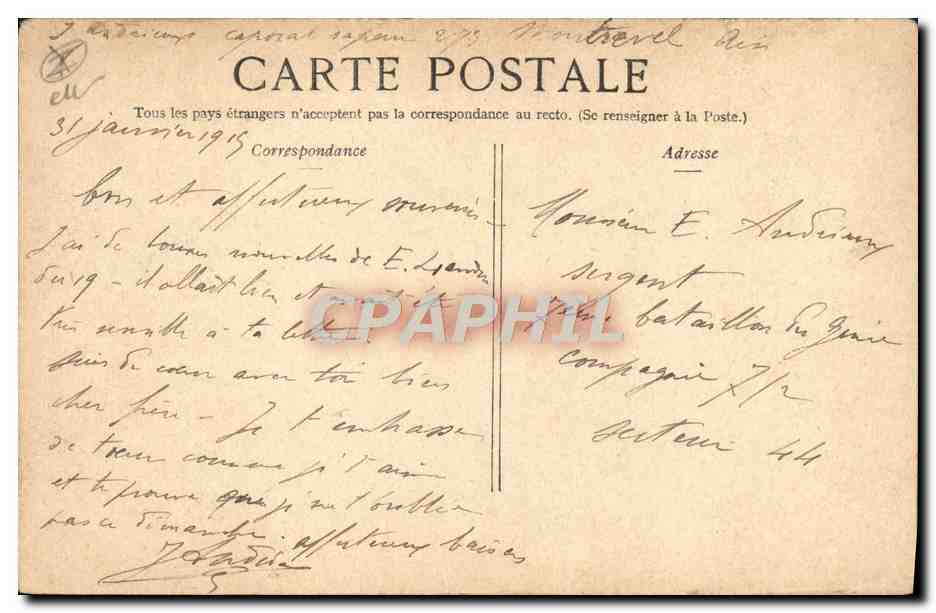 J Andrieux caporal sapeur 273 Montrevel Ain
CARTE POSTALE
Tous les pays étrangers n'acceptent pas la correspondance au recto. (Se renseigner à la Poste.)
31 janvier 1915
Correspondance
bons et affectueux souvenirs -
J'ai de bonnes nouvelles de E.
du 19 - il allait bien et a été
très sensible à ta lettre.
suis de cœur avec toi bien
cher frère - Je t'embrasse
de cœur comme je t'aime
et te prouve que je ne t'oublie
pas ce dimanche. affectueux baisers
J Andrieux
Adresse
Monsieur E. Andrieux
sergent
7ème bataillon du Génie
compagnie 7/2
secteur 44
CPAPHIL